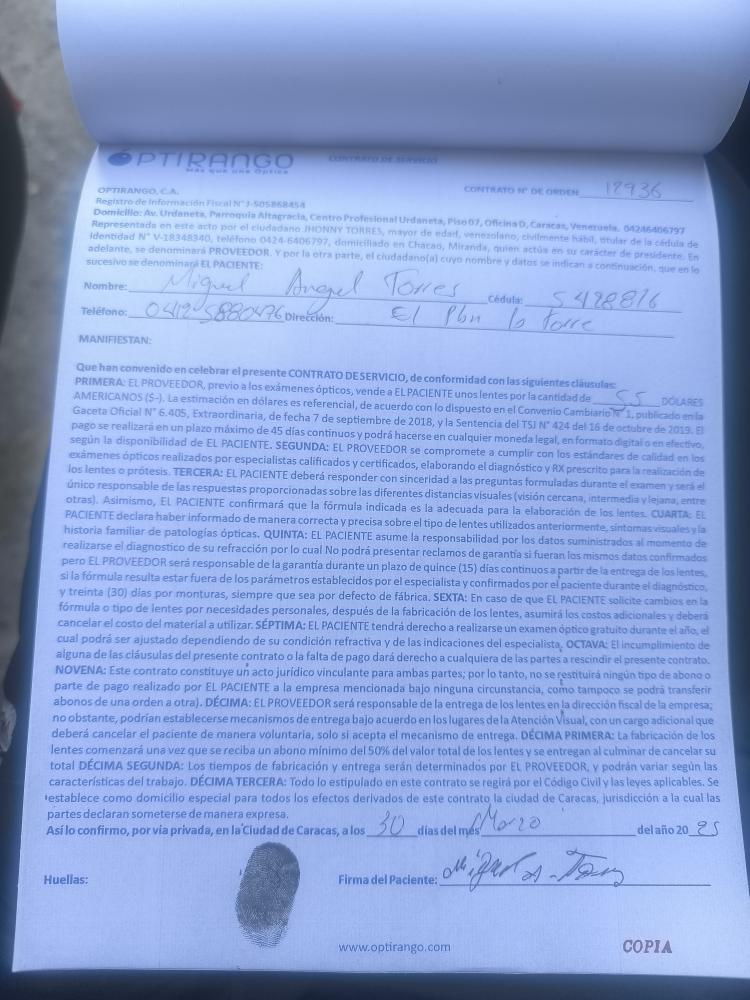 OPTIRANGO
Más que una Óptica
CONTRATO DE SERVICIO
OPTIRANGO, C.A.
CONTRATO N° DE ORDEN 12936
Registro de Información Fiscal N° J-505868454
Domicilio: Av. Urdaneta, Parroquia Altagracia, Centro Profesional Urdaneta, Piso 07, Oficina D, Caracas, Venezuela. 04246406797
Representada en este acto por el ciudadano JHONNY TORRES, mayor de edad, venezolano, civilmente hábil, titular de la cédula de
Identidad N° V-18348340, teléfono 0424-6406797, domiciliado en Chacao, Miranda, quien actúa en su carácter de presidente. En
adelante, se denominará PROVEEDOR. Y por la otra parte, el ciudadano(a) cuyo nombre y datos se indican a continuación, que en lo
sucesivo se denominará EL PACIENTE:
Nombre: Miguel Angel Torres Cédula: 5428816
Teléfono: 0412-5880476 Dirección: El Pbn la torre
MANIFIESTAN:
Que han convenido en celebrar el presente CONTRATO DE SERVICIO, de conformidad con las siguientes cláusulas:
PRIMERA: EL PROVEEDOR, previo a los exámenes ópticos, vende a EL PACIENTE unos lentes por la cantidad de 55 DÓLARES
AMERICANOS ($-). La estimación en dólares es referencial, de acuerdo con lo dispuesto en el Convenio Cambiario N° 1, publicado en la
Gaceta Oficial N° 6.405, Extraordinaria, de fecha 7 de septiembre de 2018, y la Sentencia del TSJ N° 424 del 16 de octubre de 2019. El
pago se realizará en un plazo máximo de 45 días continuos y podrá hacerse en cualquier moneda legal, en formato digital o en efectivo,
según la disponibilidad de EL PACIENTE. SEGUNDA: EL PROVEEDOR se compromete a cumplir con los estándares de calidad en los
exámenes ópticos realizados por especialistas calificados y certificados, elaborando el diagnóstico y RX prescrito para la realización de
los lentes o prótesis. TERCERA: EL PACIENTE deberá responder con sinceridad a las preguntas formuladas durante el examen y será el
único responsable de las respuestas proporcionadas sobre las diferentes distancias visuales (visión cercana, intermedia y lejana, entre
otras). Asimismo, EL PACIENTE confirmará que la fórmula indicada es la adecuada para la elaboración de los lentes. CUARTA: EL
PACIENTE declara haber informado de manera correcta y precisa sobre el tipo de lentes utilizados anteriormente, síntomas visuales y la
historia familiar de patologías ópticas. QUINTA: EL PACIENTE asume la responsabilidad por los datos suministrados al momento de
realizarse el diagnostico de su refracción por lo cual No podrá presentar reclamos de garantía si fueran los mismos datos confirmados
pero EL PROVEEDOR será responsable de la garantía durante un plazo de quince (15) días continuos a partir de la entrega de los lentes,
si la fórmula resulta estar fuera de los parámetros establecidos por el especialista y confirmados por el paciente durante el diagnóstico,
y treinta (30) días por monturas, siempre que sea por defecto de fábrica. SEXTA: En caso de que EL PACIENTE solicite cambios en la
fórmula o tipo de lentes por necesidades personales, después de la fabricación de los lentes, asumirá los costos adicionales y deberá
cancelar el costo del material a utilizar. SÉPTIMA: EL PACIENTE tendrá derecho a realizarse un examen óptico gratuito durante el año, el
cual podrá ser ajustado dependiendo de su condición refractiva y de las indicaciones del especialista. OCTAVA: El incumplimiento de
alguna de las cláusulas del presente contrato o la falta de pago dará derecho a cualquiera de las partes a rescindir el presente contrato.
NOVENA: Este contrato constituye un acto jurídico vinculante para ambas partes; por lo tanto, no se restituirá ningún tipo de abono o
parte de pago realizado por EL PACIENTE a la empresa mencionada bajo ninguna circunstancia, como tampoco se podrá transferir
abonos de una orden a otra). DÉCIMA: EL PROVEEDOR será responsable de la entrega de los lentes en la dirección fiscal de la empresa;
no obstante, podrían establecerse mecanismos de entrega bajo acuerdo en los lugares de la Atención Visual, con un cargo adicional que
deberá cancelar el paciente de manera voluntaria, solo si acepta el mecanismo de entrega. DÉCIMA PRIMERA: La fabricación de los
lentes comenzará una vez que se reciba un abono mínimo del 50% del valor total de los lentes y se entregan al culminar de cancelar su
total DÉCIMA SEGUNDA: Los tiempos de fabricación y entrega serán determinados por EL PROVEEDOR, y podrán variar según las
características del trabajo. DÉCIMA TERCERA: Todo lo estipulado en este contrato se regirá por el Código Civil y las leyes aplicables. Se
establece como domicilio especial para todos los efectos derivados de este contrato la ciudad de Caracas, jurisdicción a la cual las
partes declaran someterse de manera expresa.
Así lo confirmo, por vía privada, en la Ciudad de Caracas, a los 30 días del mes Marzo del año 2025
Huellas:
Firma del Paciente: Miguel A. Torres
www.optirango.com
COPIA